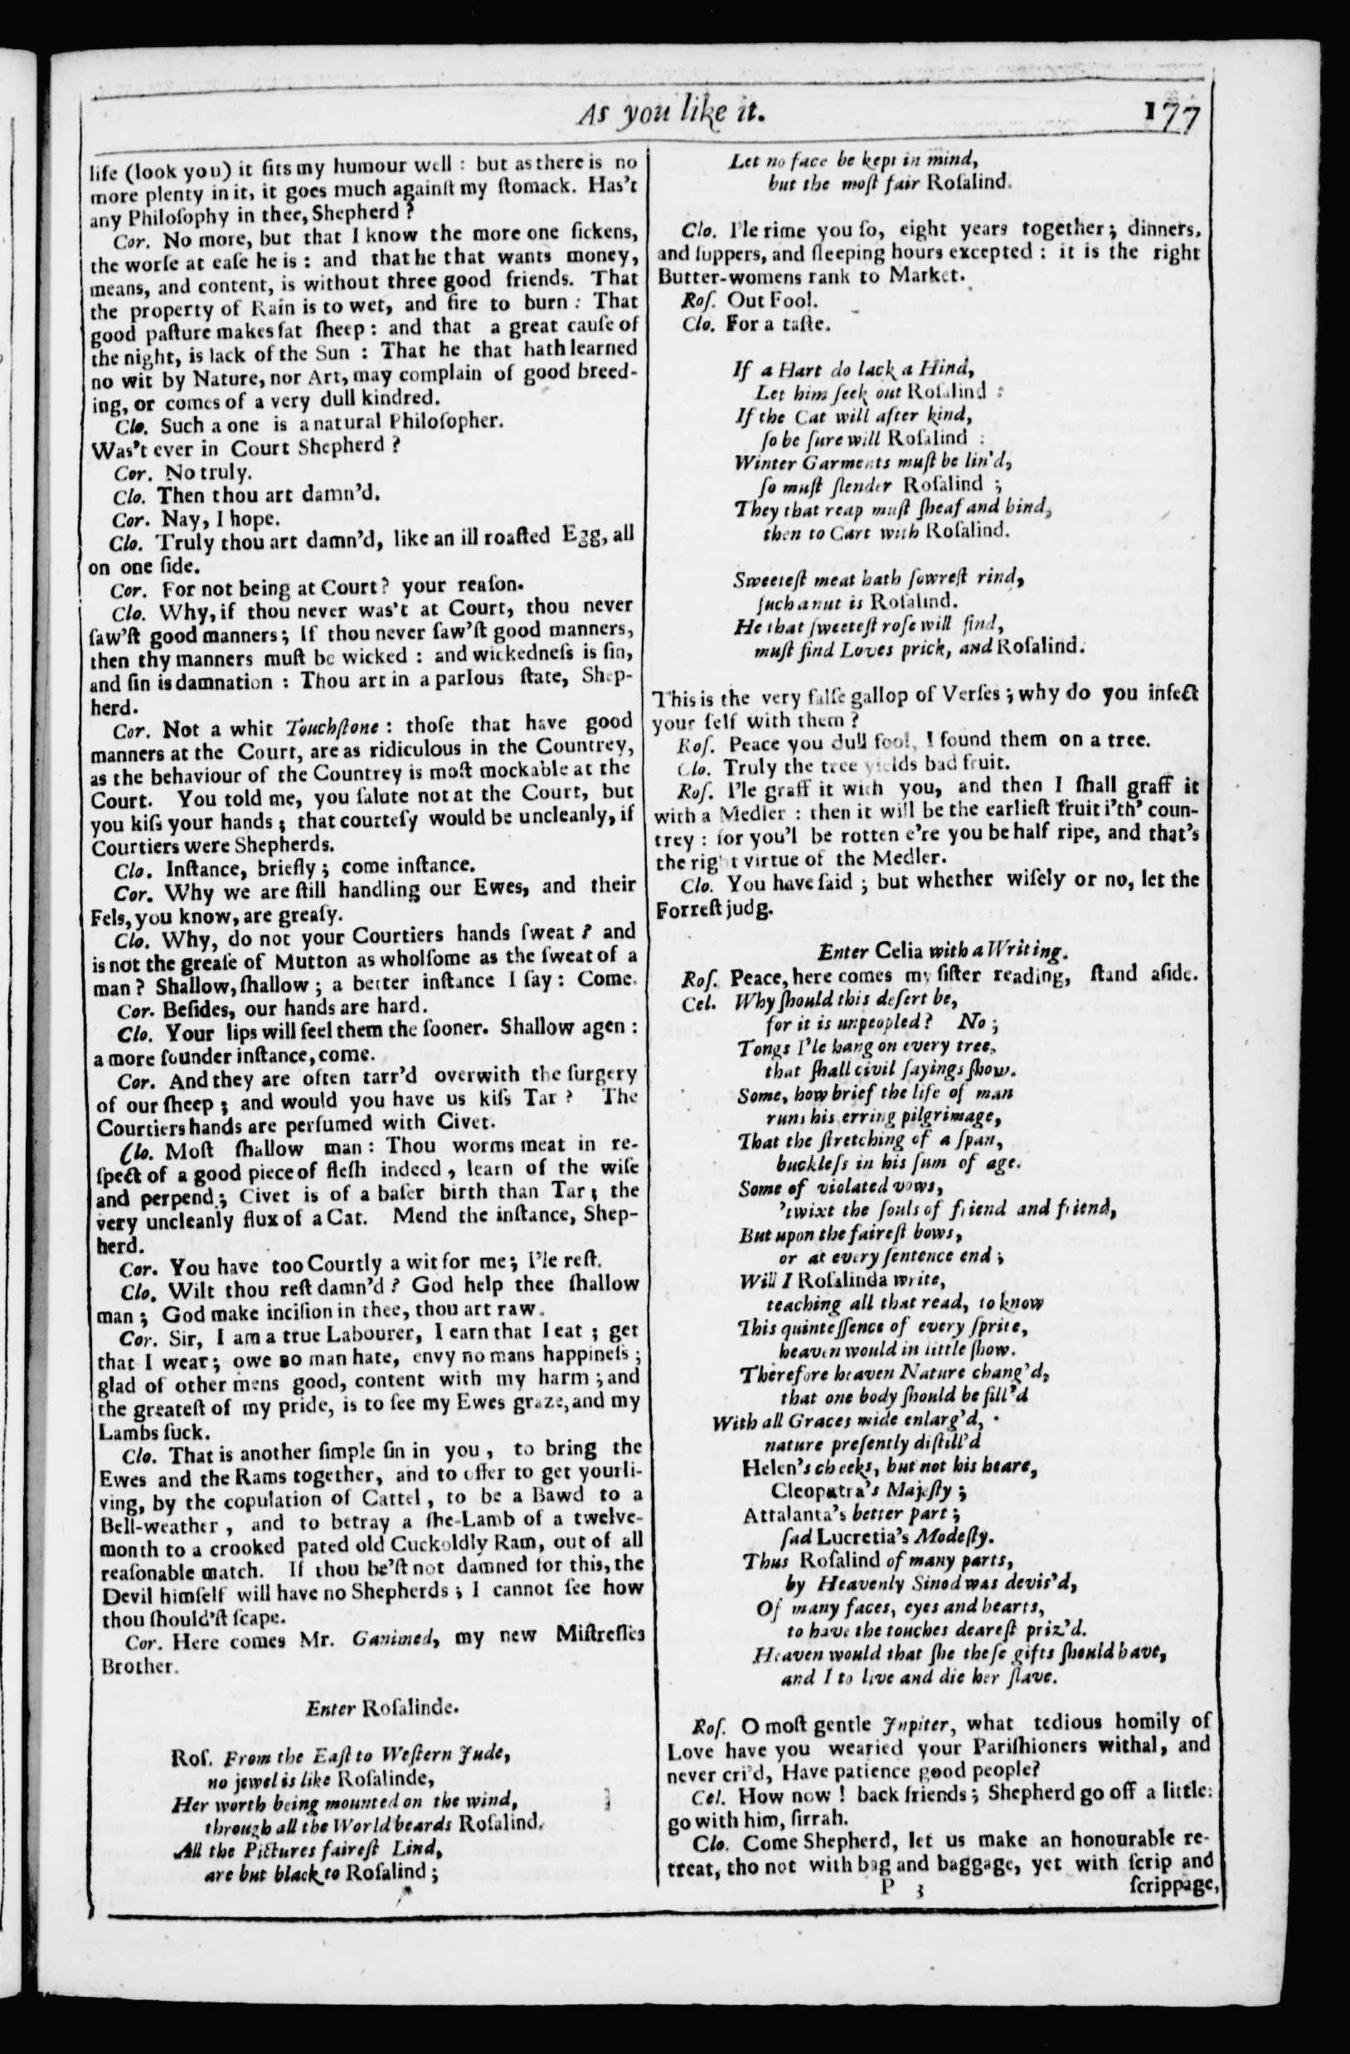 As you like it.
177
life (look you) it fits my humour well : but as there is no
more plenty in it, it goes much againſt my ſtomack. Has't
any Philoſophy in thee, Shepherd ?
Cor. No more, but that I know the more one ſickens,
the worſe at eaſe he is : and that he that wants money,
means, and content, is without three good friends. That
the property of Rain is to wet, and fire to burn : That
good paſture makes fat ſheep : and that a great cauſe of
the night, is lack of the Sun : That he that hath learned
no wit by Nature, nor Art, may complain of good breed-
ing, or comes of a very dull kindred.
Clo. Such a one is a natural Philoſopher.
Was't ever in Court Shepherd ?
Cor. No truly.
Clo. Then thou art damn'd.
Cor. Nay, I hope.
Clo. Truly thou art damn'd, like an ill roaſted Egg, all
on one ſide.
Cor. For not being at Court? your reaſon.
Clo. Why, if thou never was't at Court, thou never
ſaw'ſt good manners ; If thou never ſaw'ſt good manners,
then thy manners muſt be wicked : and wickedneſs is ſin,
and ſin is damnation : Thou art in a parlous ſtate, Shep-
herd.
Cor. Not a whit Touchſtone : thoſe that have good
manners at the Court, are as ridiculous in the Countrey,
as the behaviour of the Countrey is moſt mockable at the
Court. You told me, you ſalute not at the Court, but
you kiſs your hands ; that courteſy would be uncleanly, if
Courtiers were Shepherds.
Clo. Inſtance, briefly ; come inſtance.
Cor. Why we are ſtill handling our Ewes, and their
Fels, you know, are greaſy.
Clo. Why, do not your Courtiers hands ſweat ? and
is not the greaſe of Mutton as wholſome as the ſweat of a
man ? Shallow, ſhallow ; a better inſtance I ſay : Come.
Cor. Beſides, our hands are hard.
Clo. Your lips will feel them the ſooner. Shallow agen :
a more ſounder inſtance, come.
Cor. And they are often tarr'd over with the ſurgery
of our ſheep ; and would you have us kiſs Tar ? The
Courtiers hands are perfumed with Civet.
Clo. Moſt ſhallow man : Thou worms meat in re-
ſpect of a good piece of fleſh indeed , learn of the wiſe
and perpend ; Civet is of a baſer birth than Tar ; the
very uncleanly flux of a Cat. Mend the inſtance, Shep-
herd.
Cor. You have too Courtly a wit for me ; I'le reſt.
Clo. Wilt thou reſt damn'd ? God help thee ſhallow
man ; God make inciſion in thee, thou art raw.
Cor. Sir, I am a true Labourer, I earn that I eat ; get
that I wear ; owe no man hate, envy no mans happineſs ;
glad of other mens good, content with my harm ; and
the greateſt of my pride, is to ſee my Ewes graze, and my
Lambs ſuck.
Clo. That is another ſimple ſin in you , to bring the
Ewes and the Rams together, and to offer to get your li-
ving, by the copulation of Cattel , to be a Bawd to a
Bell-weather , and to betray a ſhe-Lamb of a twelve-
month to a crooked pated old Cuckoldly Ram, out of all
reaſonable match. If thou be'ſt not damned for this, the
Devil himſelf will have no Shepherds ; I cannot ſee how
thou ſhould'ſt ſcape.
Cor. Here comes Mr. Ganimed, my new Miſtreſſes
Brother.
Enter Roſalinde.
Roſ. From the Eaſt to Weſtern Jude,
no jewel is like Roſalinde,
Her worth being mounted on the wind,
through all the World beards Roſalind.
All the Pictures faireſt Lind,
are but black to Roſalind ;
Let no face be kept in mind,
but the moſt fair Roſalind.
Clo. I'le rime you ſo, eight years together ; dinners,
and ſuppers, and ſleeping hours excepted : it is the right
Butter-womens rank to Market.
Roſ. Out Fool.
Clo. For a taſte.
If a Hart do lack a Hind,
Let him ſeek out Roſalind :
If the Cat will after kind,
ſo be ſure will Roſalind :
Winter Garments muſt be lin'd,
ſo muſt ſlender Roſalind ;
They that reap muſt ſheaf and bind,
then to Cart with Roſalind.
Sweeteſt meat hath ſowreſt rind,
ſuch a nut is Roſalind.
He that ſweeteſt roſe will find,
muſt find Loves prick, and Roſalind.
This is the very falſe gallop of Verſes ; why do you infect
your ſelf with them ?
Roſ. Peace you dull fool, I found them on a tree.
Clo. Truly the tree yields bad fruit.
Roſ. I'le graff it with you, and then I ſhall graff it
with a Medler : then it will be the earlieſt fruit i'th' coun-
trey : for you'l be rotten e're you be half ripe, and that's
the right virtue of the Medler.
Clo. You have ſaid ; but whether wiſely or no, let the
Forreſt judg.
Enter Celia with a Writing.
Roſ. Peace, here comes my ſiſter reading, ſtand aſide.
Cel. Why ſhould this deſert be,
for it is unpeopled ? No ;
Tongs I'le hang on every tree,
that ſhall civil ſayings ſhow.
Some, how brief the life of man
runs his erring pilgrimage,
That the ſtretching of a ſpan,
buckleſs in his ſum of age.
Some of violated vows,
'twixt the ſouls of friend and friend,
But upon the faireſt bows,
or at every ſentence end ;
Will I Roſalinda write,
teaching all that read, to know
This quinteſſence of every ſprite,
heaven would in little ſhow.
Therefore heaven Nature chang'd,
that one body ſhould be fill'd
With all Graces wide enlarg'd,
nature preſently diſtill'd
Helen's cheeks, but not his heare,
Cleopatra's Majeſty ;
Attalanta's better part ;
ſad Lucretia's Modeſty.
Thus Roſalind of many parts,
by Heavenly Sinod was devis'd,
Of many faces, eyes and hearts,
to have the touches deareſt priz'd.
Heaven would that ſhe theſe gifts ſhould have,
and I to live and die her ſlave.
Roſ. O moſt gentle Jupiter, what tedious homily of
Love have you wearied your Pariſhioners withal, and
never cri'd, Have patience good people?
Cel. How now ! back friends ; Shepherd go off a little:
go with him, ſirrah.
Clo. Come Shepherd, let us make an honourable re-
treat, tho not with bag and baggage, yet with ſcrip and
P 3
ſcrippage,